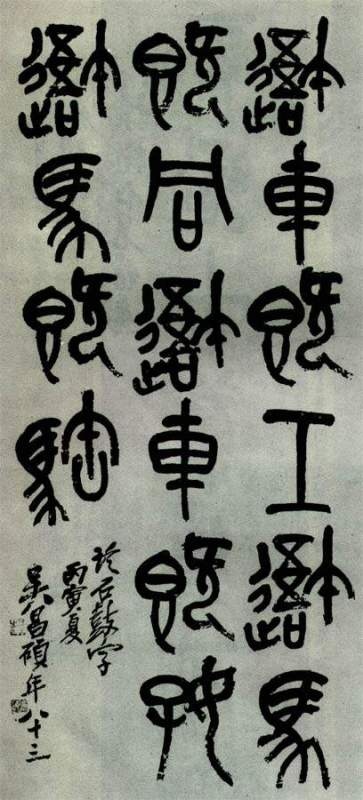 吾車既工吾馬
既同吾車既好
吾馬既騊
臨石鼓字
丙寅夏
吳昌碩年八十三